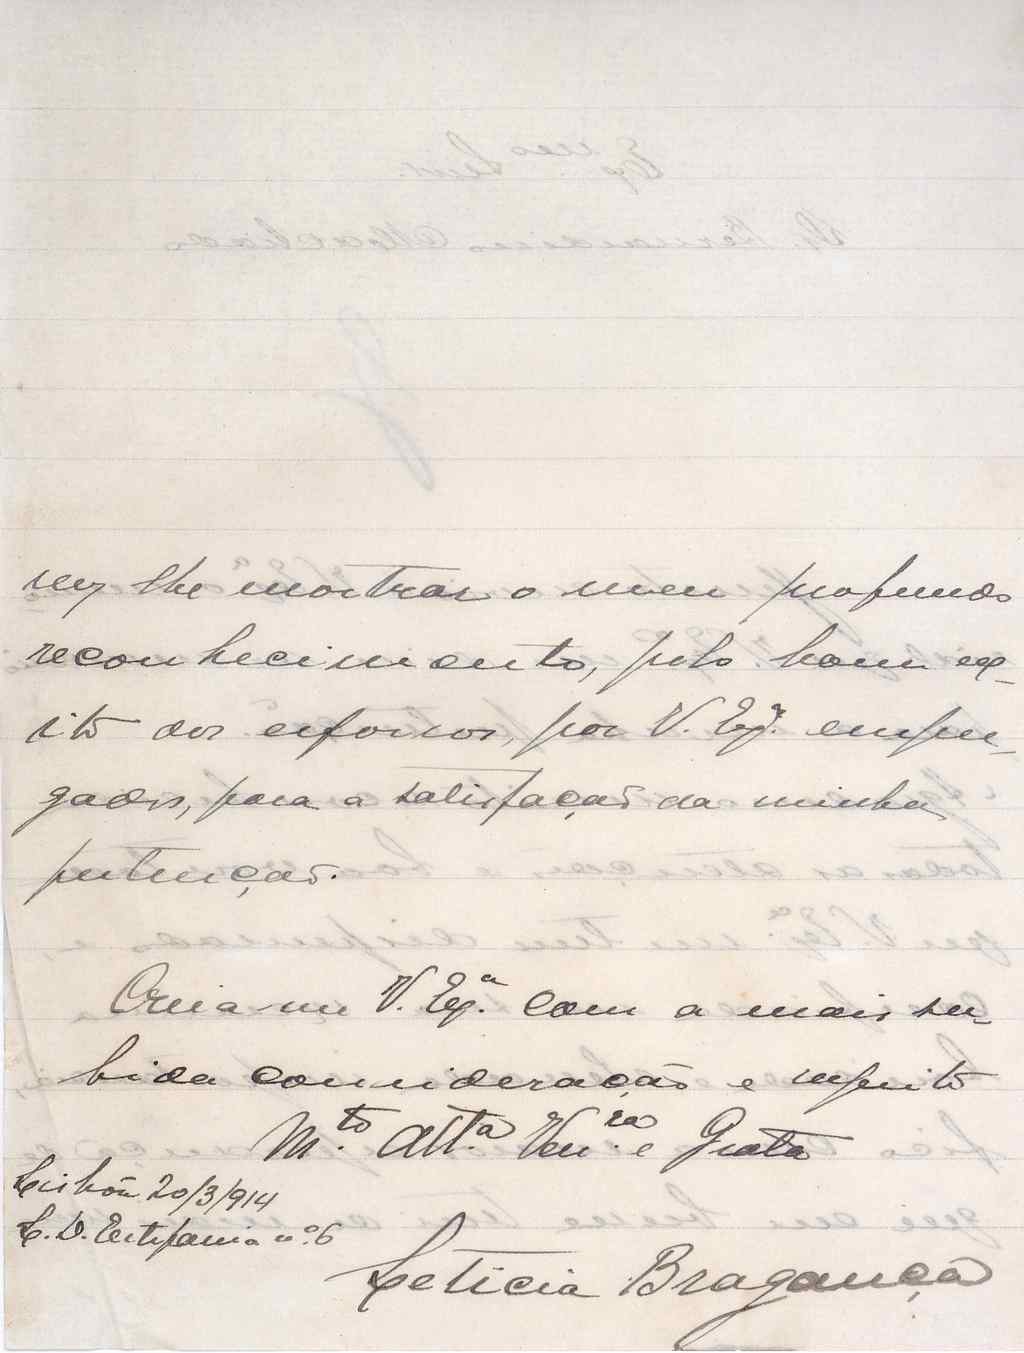 vez lhe mostrar o meu profundo
reconhecimento, pelo bom ex-
ito dos esforsos, por V. Exª. empre-
gados, para a satisfação da minha
pretenção.
Creia-me V. Exª. com a mais su-
bida consideração e respeito
M.to Att.a Ven.ra e Grata
Lisboa 20/3/914
L. D. Estefania nº. 6
Leticia Bragança